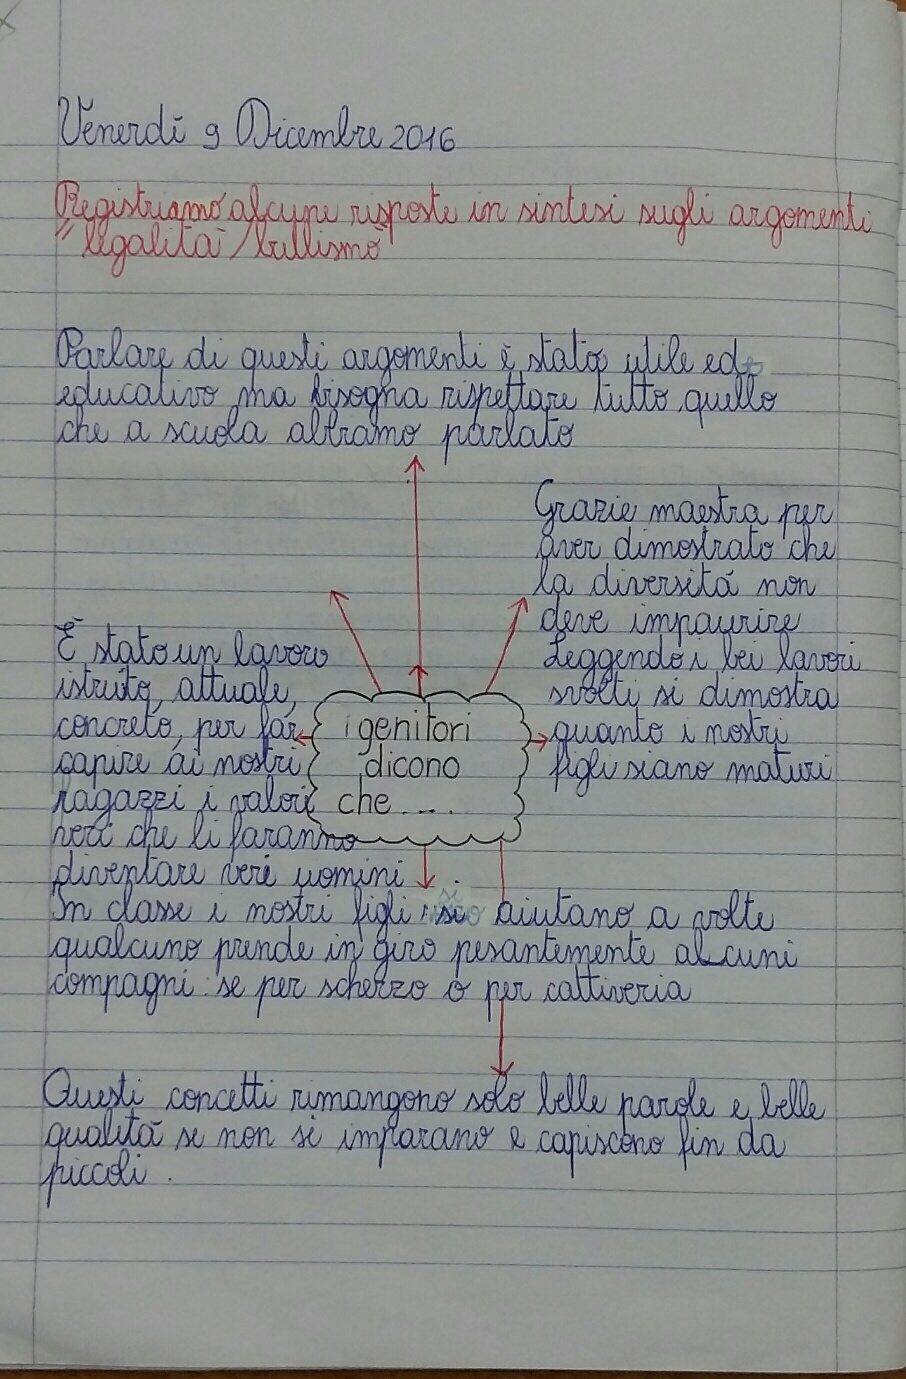 Venerdì 9 Dicembre 2016
Registriamo alcune risposte in sintesi sugli argomenti
"legalità/bullismo"
Parlare di questi argomenti è stato utile ed
educativo ma bisogna rispettare tutto quello
che a scuola abbiamo parlato
Grazie maestra per
aver dimostrato che
la diversità non
deve impaurire
Leggendo i bei lavori
svolti si dimostra
quanto i nostri
figli siano maturi
È stato un lavoro
istruito, attuale,
concreto, per far
capire ai nostri
ragazzi i valori
veri che li faranno
diventare veri uomini
i genitori
dicono
che ....
In classe i nostri figli si aiutano a volte
qualcuno prende in giro pesantemente alcuni
compagni: se per scherzo o per cattiveria
Questi concetti rimangono solo belle parole e belle
qualità se non si imparano e capiscono fin da
piccoli.